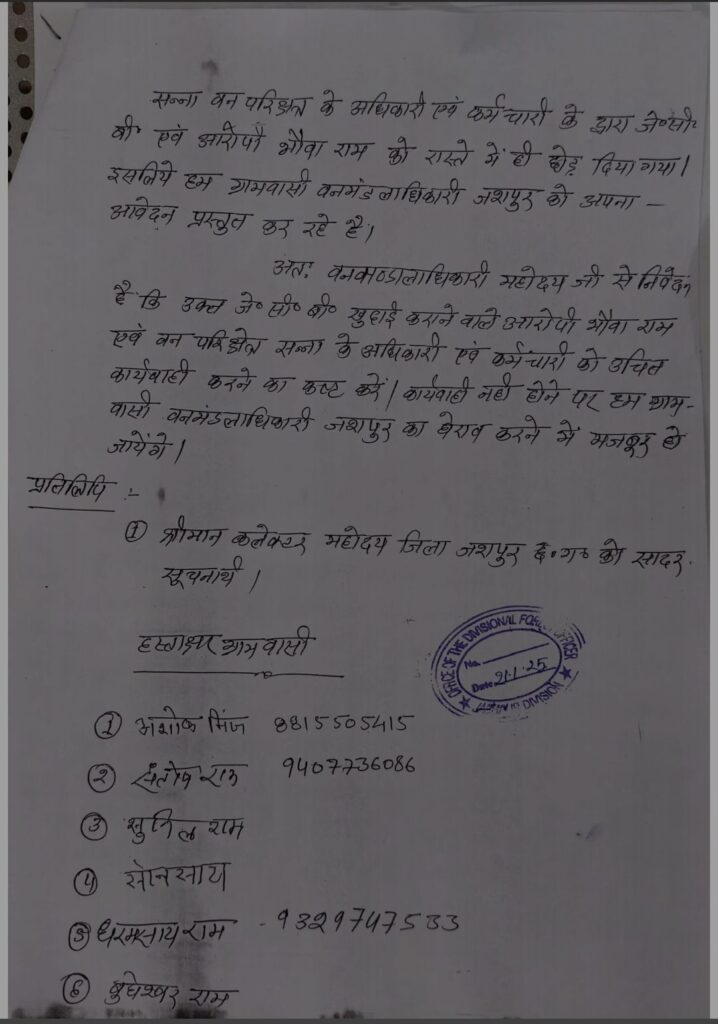 सन्ना वन परिक्षेत्र के अधिकारी एवं कर्मचारी के द्वारा जे०सी०
बी० एवं आरोपी भौवा राम को रास्ते में ही छोड़ दिया गया।
इसलिये हम ग्रामवासी वनमंडलाधिकारी जशपुर को अपना –
आवेदन प्रस्तुत कर रहे है।
अतः वनमण्डालाधिकारी महोदय जी से निवेदन
है कि उक्त जे० सी० बी० खुदाई कराने वाले आरोपी भौवा राम
एवं वन परिक्षेत्र सन्ना के अधिकारी एवं कर्मचारी को उचित
कार्यवाही करने का कष्ट करें। कार्यवाही नही होने पर हम ग्राम-
वासी वनमंडलाधिकारी जशपुर का घेराव करने में मजबूर हो
जायेंगे।
प्रतिलिपि :-
① श्रीमान कलेक्टर महोदय जिला जशपुर छ०ग० को सादर
सूचनार्थ।
हस्ताक्षर ग्रामवासी
OFFICE OF THE DIVISIONAL FOREST OFFICER
No.
Date 21.1.25
JASHPUR DIVISION
① अशोक मिंज 8815505415
② संतोष राम 9407736086
③ सुनिल राम
④ सोनसाय
⑤ धरमसाय राम - 9329747533
⑥ बुधेश्वर राम